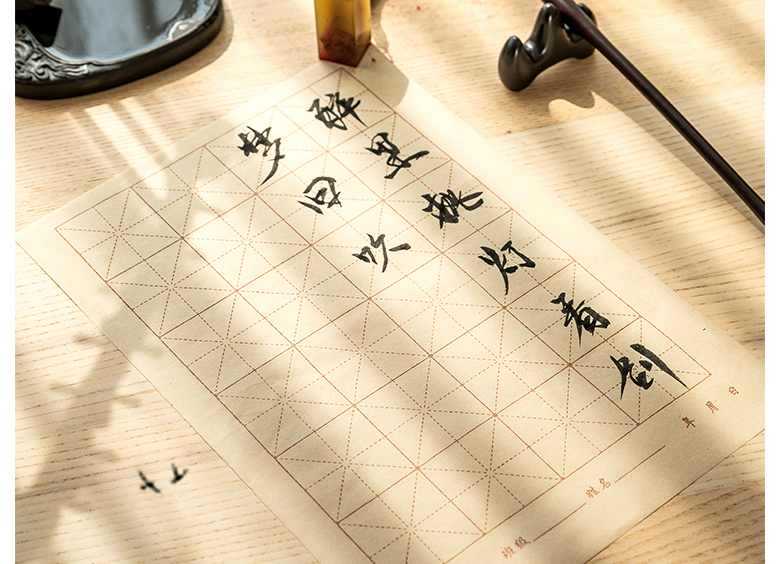 醉里挑灯看剑
梦回吹
班级 姓名 年 月 日